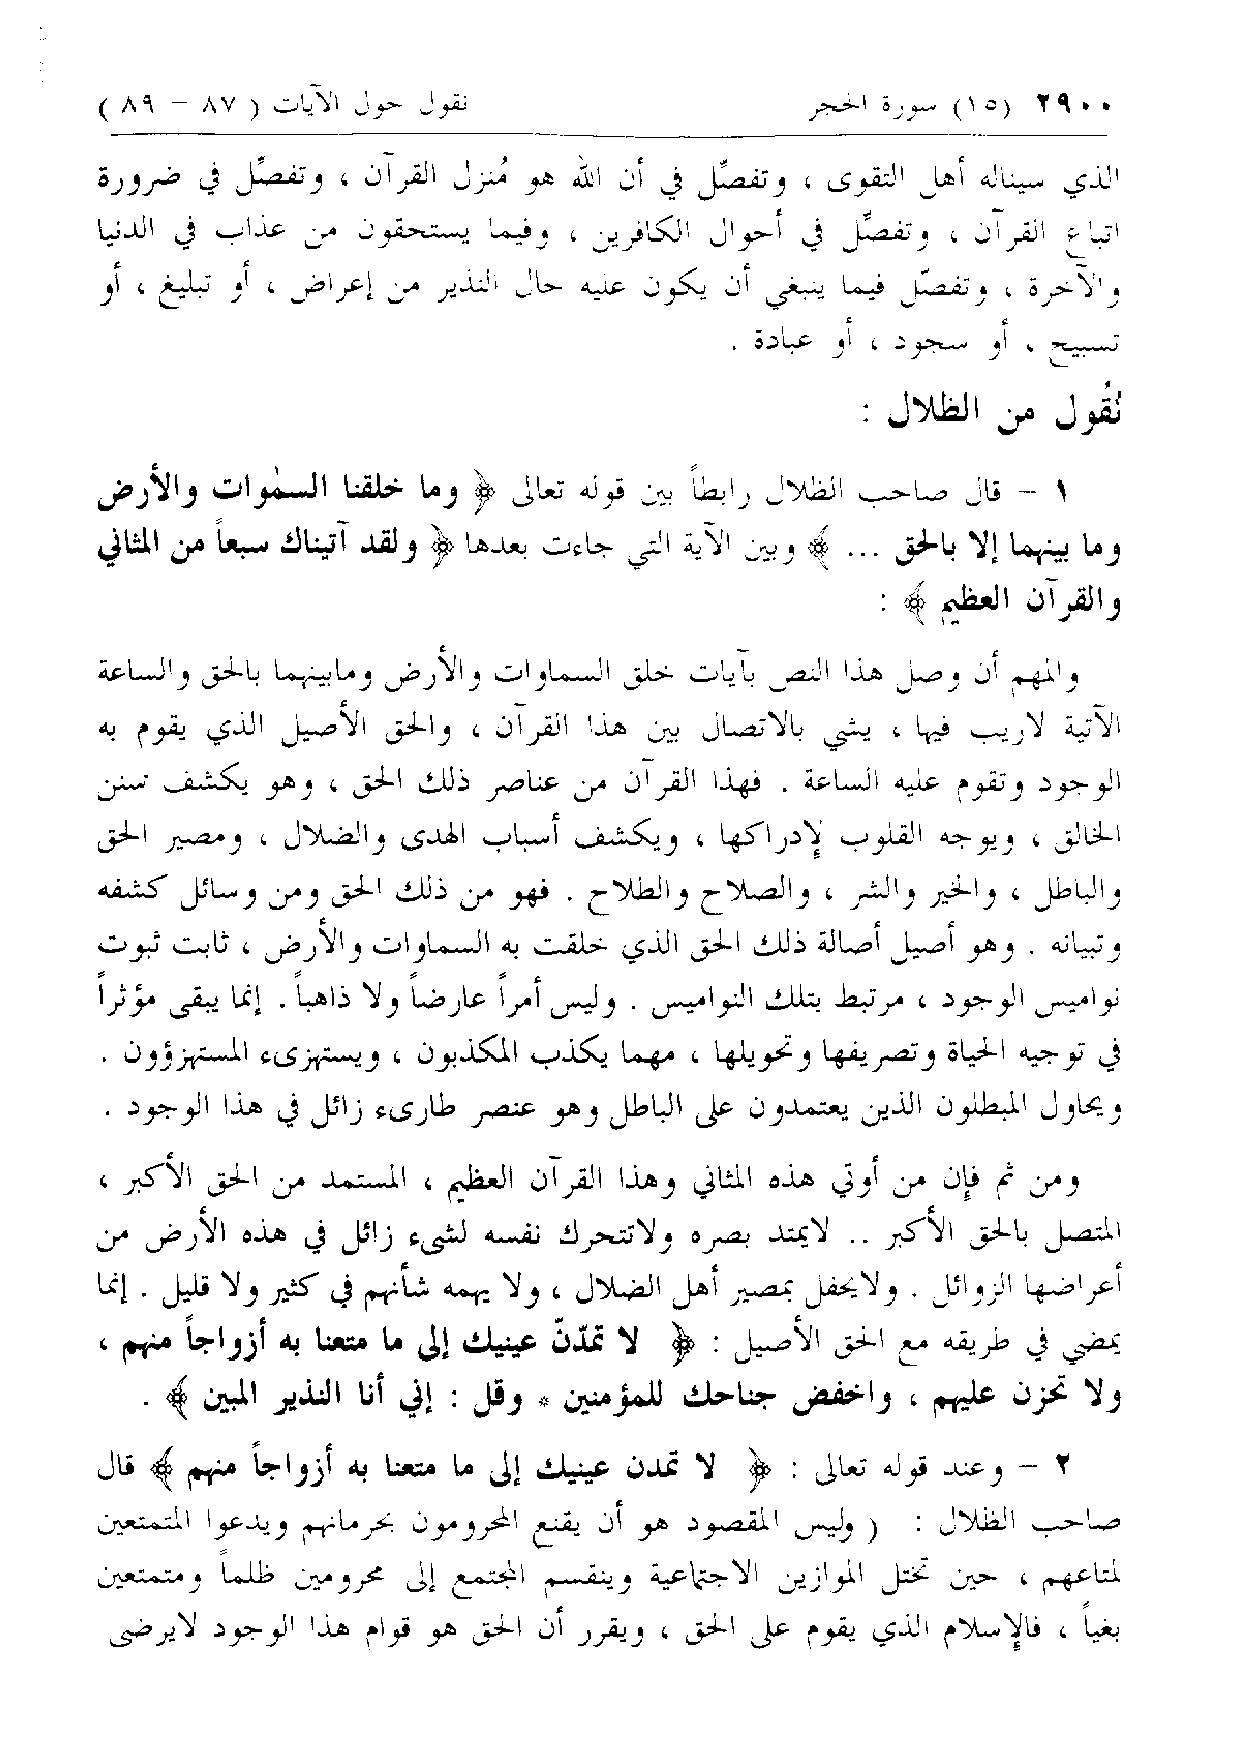 ٢٩٠٠ (١٥) سورة الحجر نقول حول الآيات ( ٨٧ - ٨٩ )
الذي سيناله أهل التقوى ، وتفصِّل في أن الله هو مُنزل القرآن ، وتفصِّل في ضرورة
اتباع القرآن ، وتفصِّل في أحوال الكافرين ، وفيما يستحقون من عذاب في الدنيا
والآخرة ، وتفصّل فيما ينبغي أن يكون عليه حال النذير من إعراض ، أو تبليغ ، أو
تسبيح ، أو سجود ، أو عبادة .
نُقول من الظلال :
١ - قال صاحب الظلال رابطاً بين قوله تعالى ﴿ وما خلقنا السمٰوات والأرض
وما بينهما إلا بالحق ... ﴾ وبين الآية التي جاءت بعدها ﴿ ولقد آتيناك سبعاً من المثاني
والقرآن العظيم ﴾ :
والمهم أن وصل هذا النص بآيات خلق السماوات والأرض ومابينهما بالحق والساعة
الآتية لاريب فيها ، يشي بالاتصال بين هذا القرآن ، والحق الأصيل الذي يقوم به
الوجود وتقوم عليه الساعة . فهذا القرآن من عناصر ذلك الحق ، وهو يكشف سنن
الخالق ، ويوجه القلوب لإدراكها ، ويكشف أسباب الهدى والضلال ، ومصير الحق
والباطل ، والخير والشر ، والصلاح والطلاح . فهو من ذلك الحق ومن وسائل كشفه
وتبيانه . وهو أصيل أصالة ذلك الحق الذي خلقت به السماوات والأرض ، ثابت ثبوت
نواميس الوجود ، مرتبط بتلك النواميس . وليس أمراً عارضاً ولا ذاهباً . إنما يبقى مؤثراً
في توجيه الحياة وتصريفها وتحويلها ، مهما يكذب المكذبون ، ويستهزىء المستهزؤون .
ويحاول المبطلون الذين يعتمدون على الباطل وهو عنصر طارىء زائل في هذا الوجود .
ومن ثم فإن من أوتي هذه المثاني وهذا القرآن العظيم ، المستمد من الحق الأكبر ،
المتصل بالحق الأكبر .. لايمتد بصره ولاتتحرك نفسه لشىء زائل في هذه الأرض من
أعراضها الزوائل . ولايحفل بمصير أهل الضلال ، ولا يهمه شأنهم في كثير ولا قليل . إنما
يمضي في طريقه مع الحق الأصيل : ﴿ لا تمّدنّ عينيك إلى ما متعنا به أزواجاً منهم ،
ولا تحزن عليهم ، واخفض جناحك للمؤمنين * وقل : إني أنا النذير المبين ﴾ .
٢ - وعند قوله تعالى : ﴿ لا تمدن عينيك إلى ما متعنا به أزواجاً منهم ﴾ قال
صاحب الظلال : ( وليس المقصود هو أن يقنع المحرومون بحرمانهم ويدعوا المتمتعين
لمتاعهم ، حين تختل الموازين الاجتماعية وينقسم المجتمع إلى محرومين ظلماً ومتمتعين
بغياً ، فالإسلام الذي يقوم على الحق ، ويقرر أن الحق هو قوام هذا الوجود لايرضى